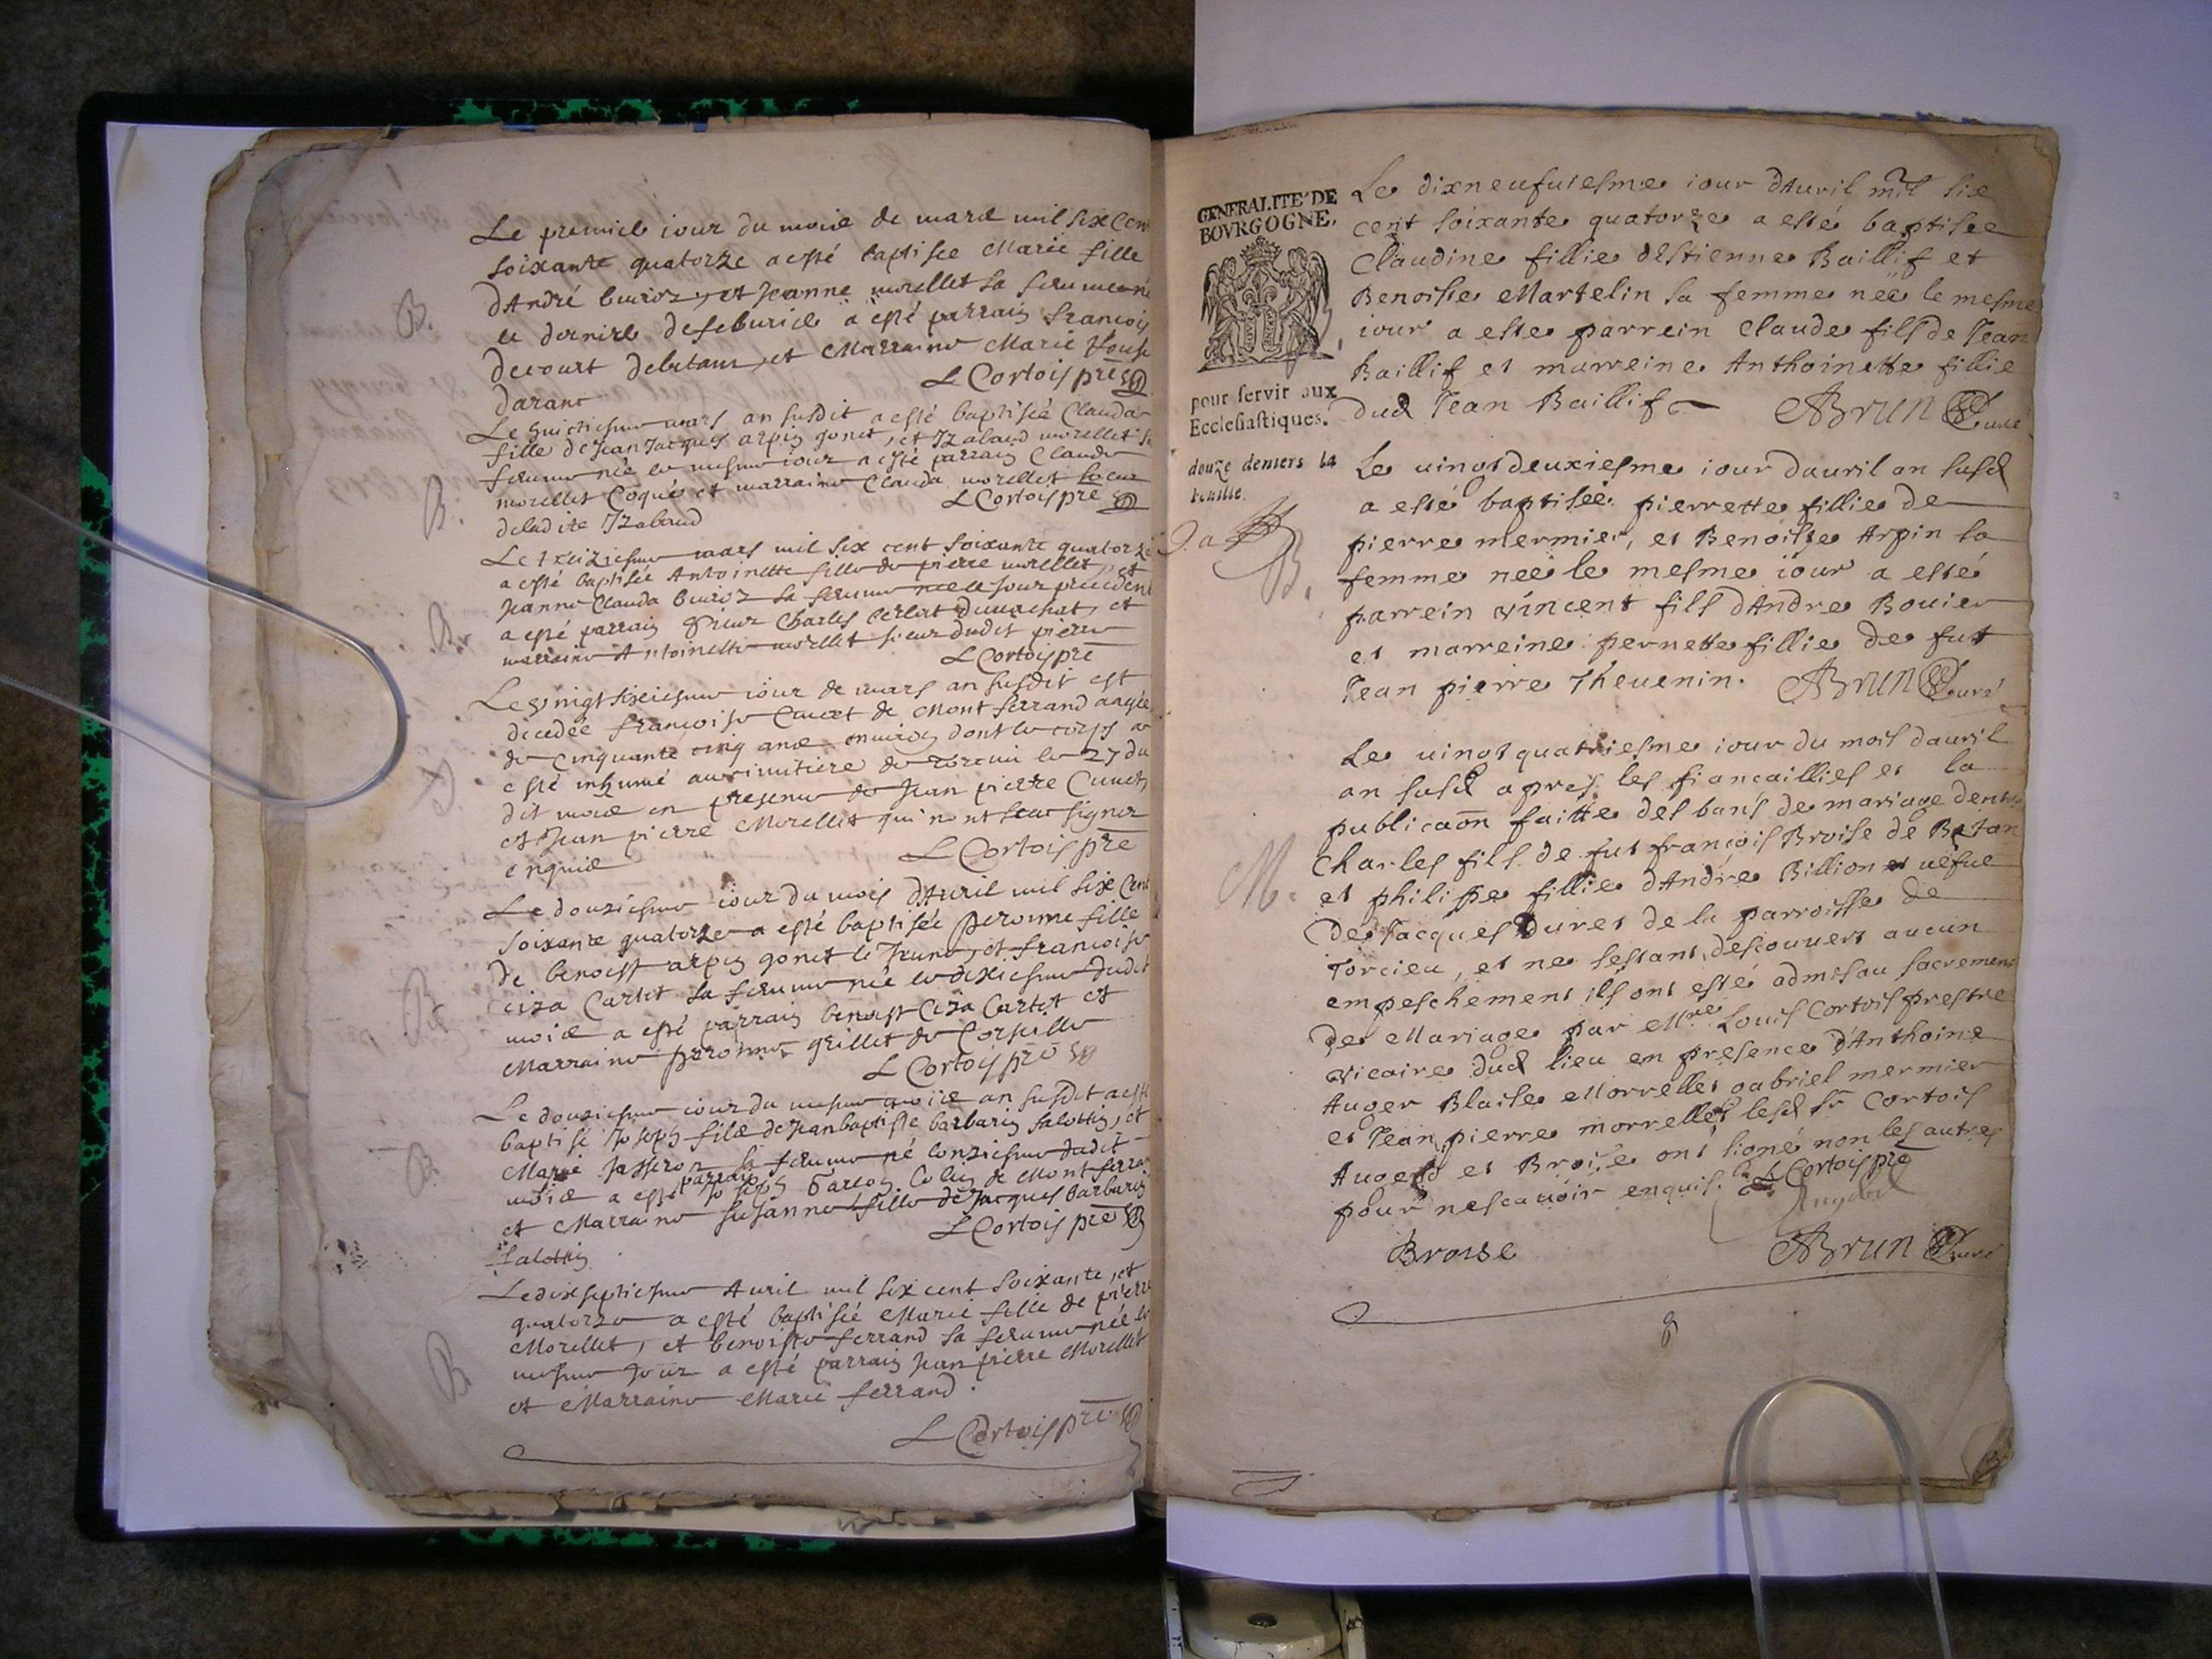 Le premier iour du mois de mars mil six cent
soixante quatorze a esté baptisee Marie fille
d'André buiroz, et Jeanne morellet sa femme né
le dernire de feburier a esté parrain francois
decourt debetans, et Marraine Marie
darane
L Cortois pre
B.
Le huictiesme mars an susdit a esté baptisée Clauda
fille de Jean Jacques arpin gonet, et Izabaud morellet sa
femme née le mesme iour a esté parrain Claude
morellet Coque et marraine Clauda morellet soeur
deladite Izabaud
L Cortois pre
B.
Le treiziesme mars mil six cent soixante quatorze
a esté baptisée Antoinette fille de pierre morellet, et
Jeanne Clauda buiroz sa femme née le jour precedent
a esté parrain Sieur Charles dumachat, et
marraine Antoinette morellet soeur dudit pierre
L Cortois pre
B.
Le vingt sixiesme iour de mars an susdit est
decedée francoise Cunet de Montferrand angée
de cinquante cinq ans enuiron dont le corps a
esté inhumé au cimitiere de torcieu le 27 du
dit mois en presence de Jean pierre Cunet,
et Jean pierre Morellet qui n'ont sceu signer
enquis
L Cortois pre
Le douziesme iour du mois d'Auril mil six cent
soixante quatorze a esté baptisée peronne fille
de benoist arpin gonet le Jeune, et francoise
ciza Cartet sa femme née le dixiesme dudit
mois a esté parrain benoist Ciza Cartet et
Marraine peronne grillet de Corselle
L Cortois pre
B
Le douziesme iour du mesme mois an susdit a esté
baptisé Joseph fils de Jean baptiste barbarin salottin, et
Marie Jasseron sa femme né lonziesme dudit
mois a esté parrain Joseph Colin de Montferrand
et Marraine Susanne fille de Jacques barbarin
salottin
L Cortois pre
B
Le dix septiesme Auril mil six cent soixante, et
quatorze a esté baptisée Marie fille de pierre
Morellet, et benoiste ferrand sa femme née le
mesme jour a esté parrain Jean pierre Morellet
et Marraine Marie ferrand.
L Cortois pre
B
GENERALITE DE
BOVRGOGNE,
pour servir aux
Ecclesiastiques.
douze deniers la
feuille.
Le dixneufuiesme iour dAuril mil six
cent soixante quatorze a esté baptisee
Claudine fillie dEstienne Baillif et
Benoiste Martelin sa femme née le mesme
iour a este parrein Claude fils de Jean
Baillif et marreine Anthoinette fillie
dud Jean Baillif
ABrun Curé
Le uingtdeuxiesme iour dauril an susd
a esté baptisée pierrette fillie de
pierre mermier, et Benoiste Arpin sa
femme nee le mesme iour a esté
parrein vincent fils dAndre Bouier
et marreine pernette fillie de fut
Jean pierre Theuenin. ABrun Curé
B.
Le uingtquatriesme iour du mois dauril
an susd apres les fiancaillies et la
publicaõn faitte des bans de mariage dentre
Charles fils de fut françois Broise de Betan
et philippe fillie dAndre Billion et uefue
de Jacques Duret de la parroisse de
Torcieu, et ne sestant descouuert aucun
empeschement ils ont esté admis au sacrement
de Mariage par Mre Louis Cortois prestre
vicaire dud lieu en presence d'Anthoine
Auger Blaise Morrellet gabriel mermier
et Jean pierre morrellet lesd Sr Cortois
Augerd et Broise ont signé non les autres
pour ne scauoir enquis. L Cortois pre
M.
Broise
ABrun Curé